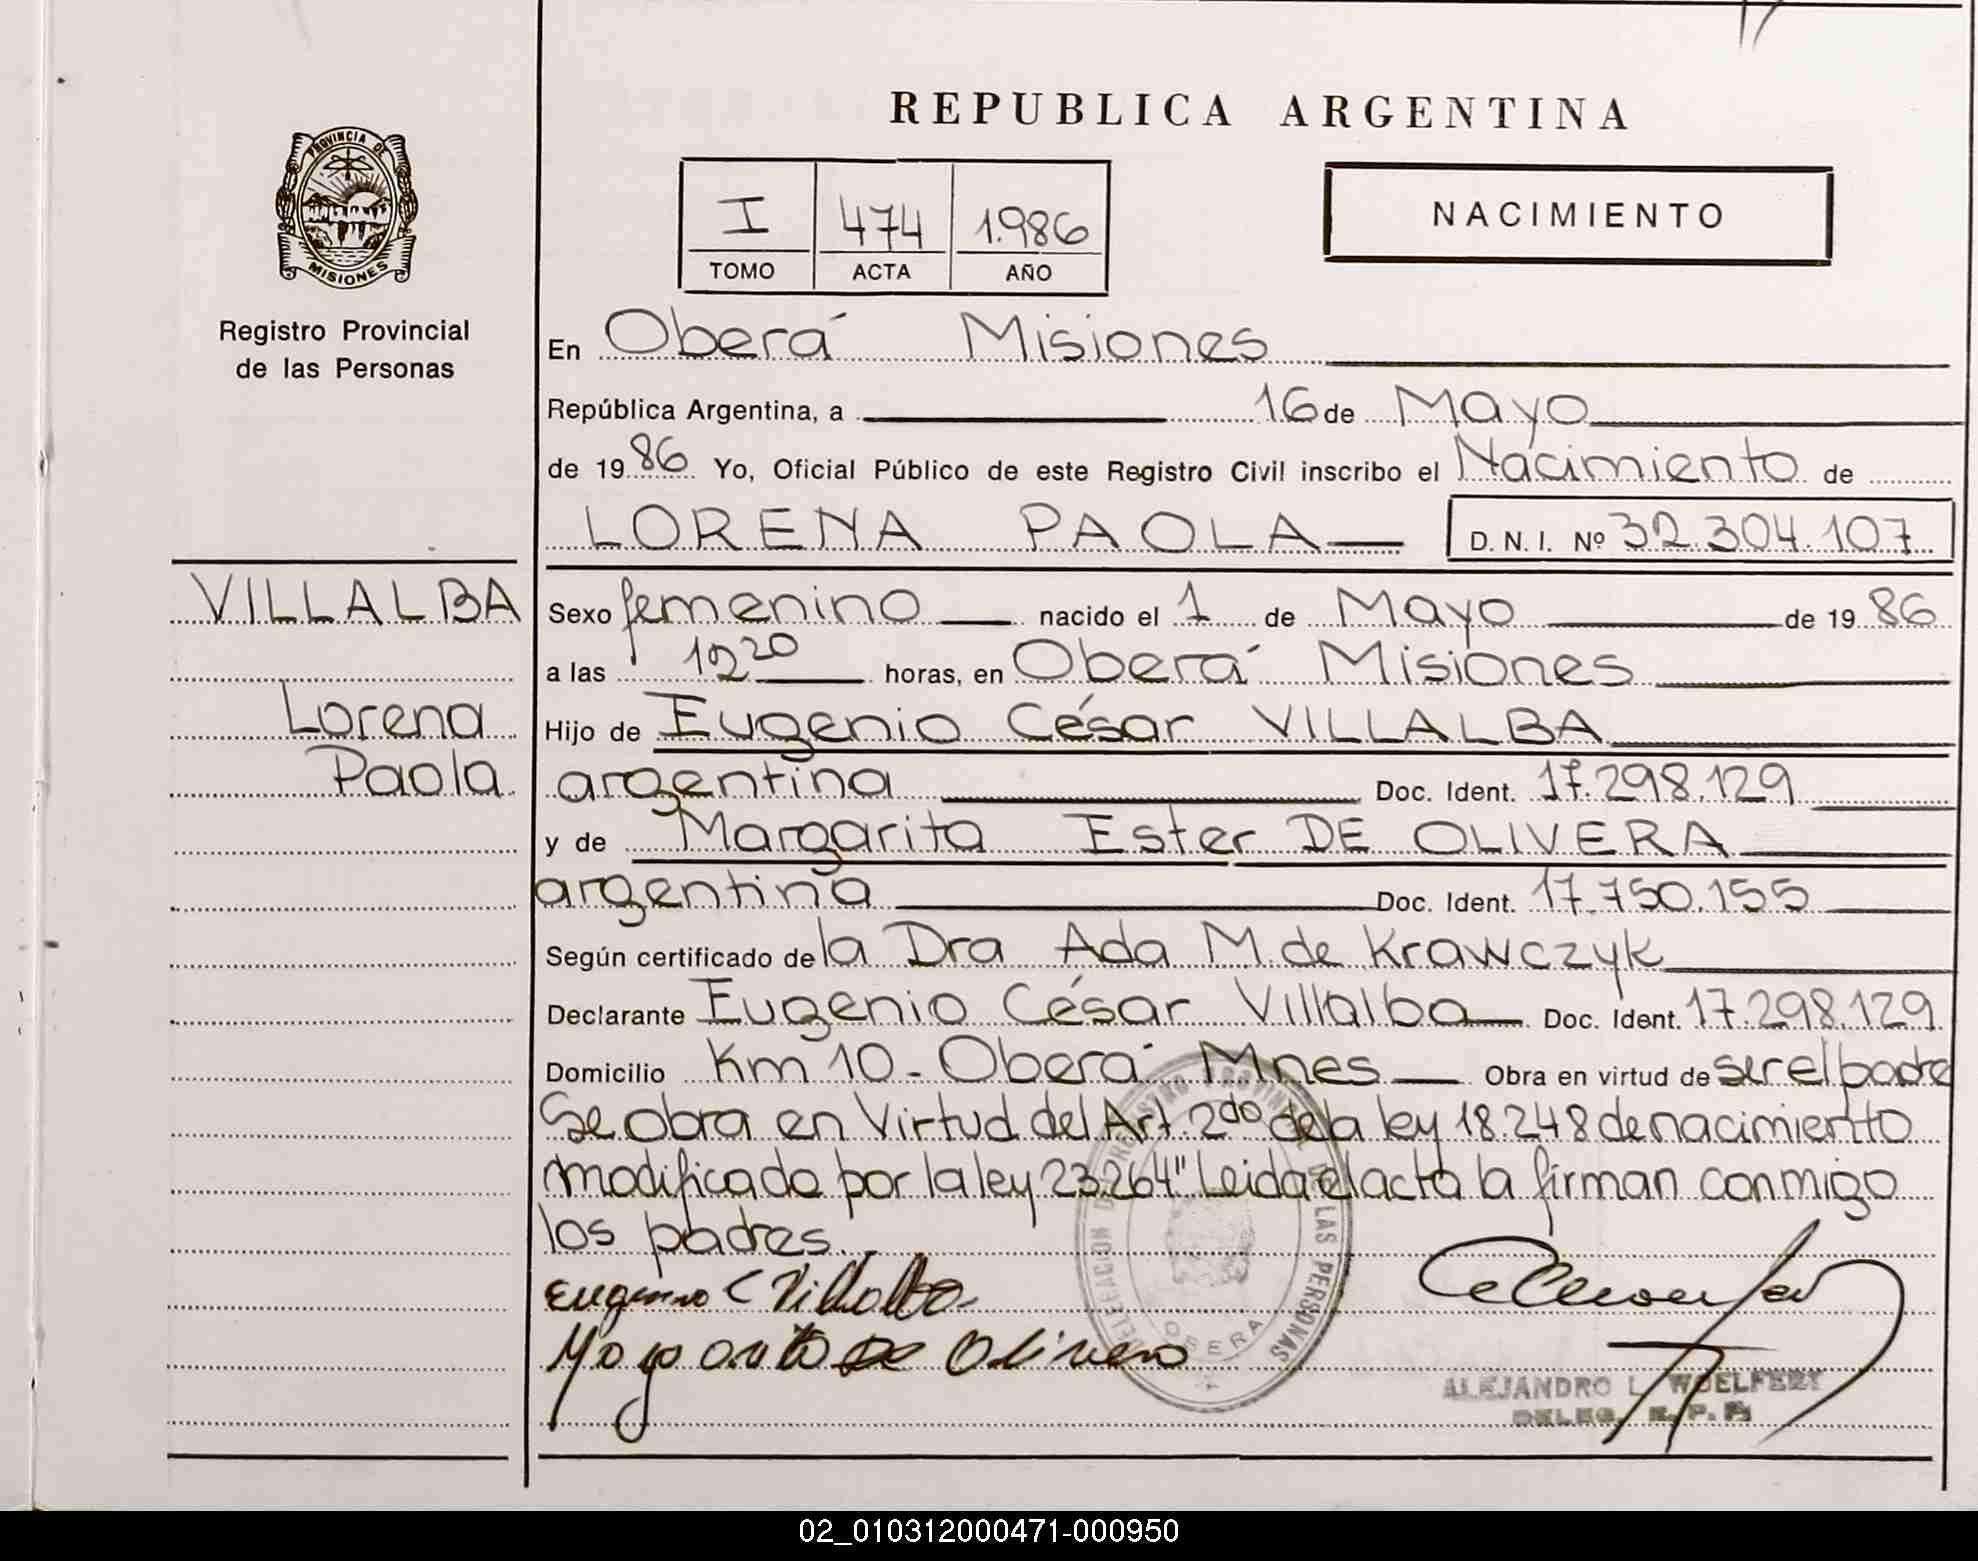 REPUBLICA ARGENTINA
PROVINCIA DE
MISIONES
Registro Provincial
de las Personas
I 474 1.986
TOMO ACTA AÑO
NACIMIENTO
En Oberá Misiones
República Argentina, a 16 de Mayo
de 1986 Yo, Oficial Público de este Registro Civil inscribo el Nacimiento de
LORENA PAOLA D.N.I. Nº 32.304.107
VILLALBA
Lorena
Paola
Sexo femenino nacido el 1 de Mayo de 1986
a las horas, en Oberá Misiones
Hijo de Eugenio César VILLALBA
argentina Doc. Ident. 17.298.129
y de Margarita Ester DE OLIVERA
argentina Doc. Ident. 17.750.155
Según certificado de la Dra Ada M. de Krawczyk
Declarante Eugenio César Villalba Doc. Ident. 17.298.129
Domicilio Km 10 - Oberá Mnes Obra en virtud de ser el padre
Se obra en Virtud del Art. 2do de la ley 18.248 de nacimiento
modificado por la ley 23.264" Leida el acta la firman conmigo
los padres.
Eugenio C Villalba
De Olivera
DELEGACION DEL REGISTRO PROVINCIAL DE LAS PERSONAS
OBERA
ALEJANDRO L. WOELFERT
DELEG. R. P. P.
02_010312000471-000950